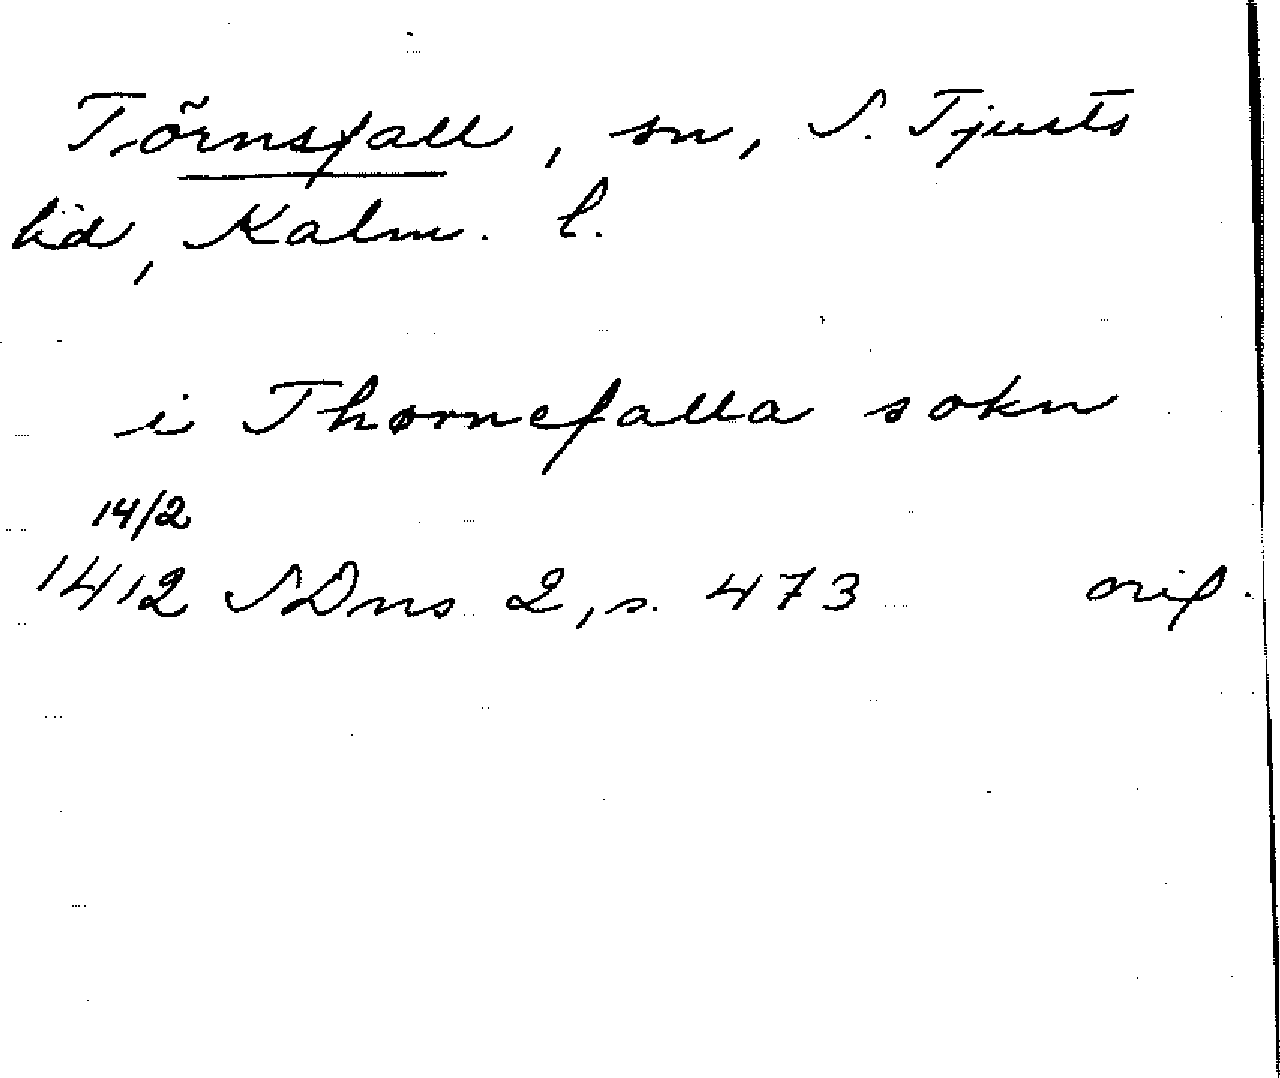 Törnsfall, sn, S. Tjusts
hd, Kalm. l.
i Thørnefalla sokn
14/2
1412 SDns 2, s. 473 orig.